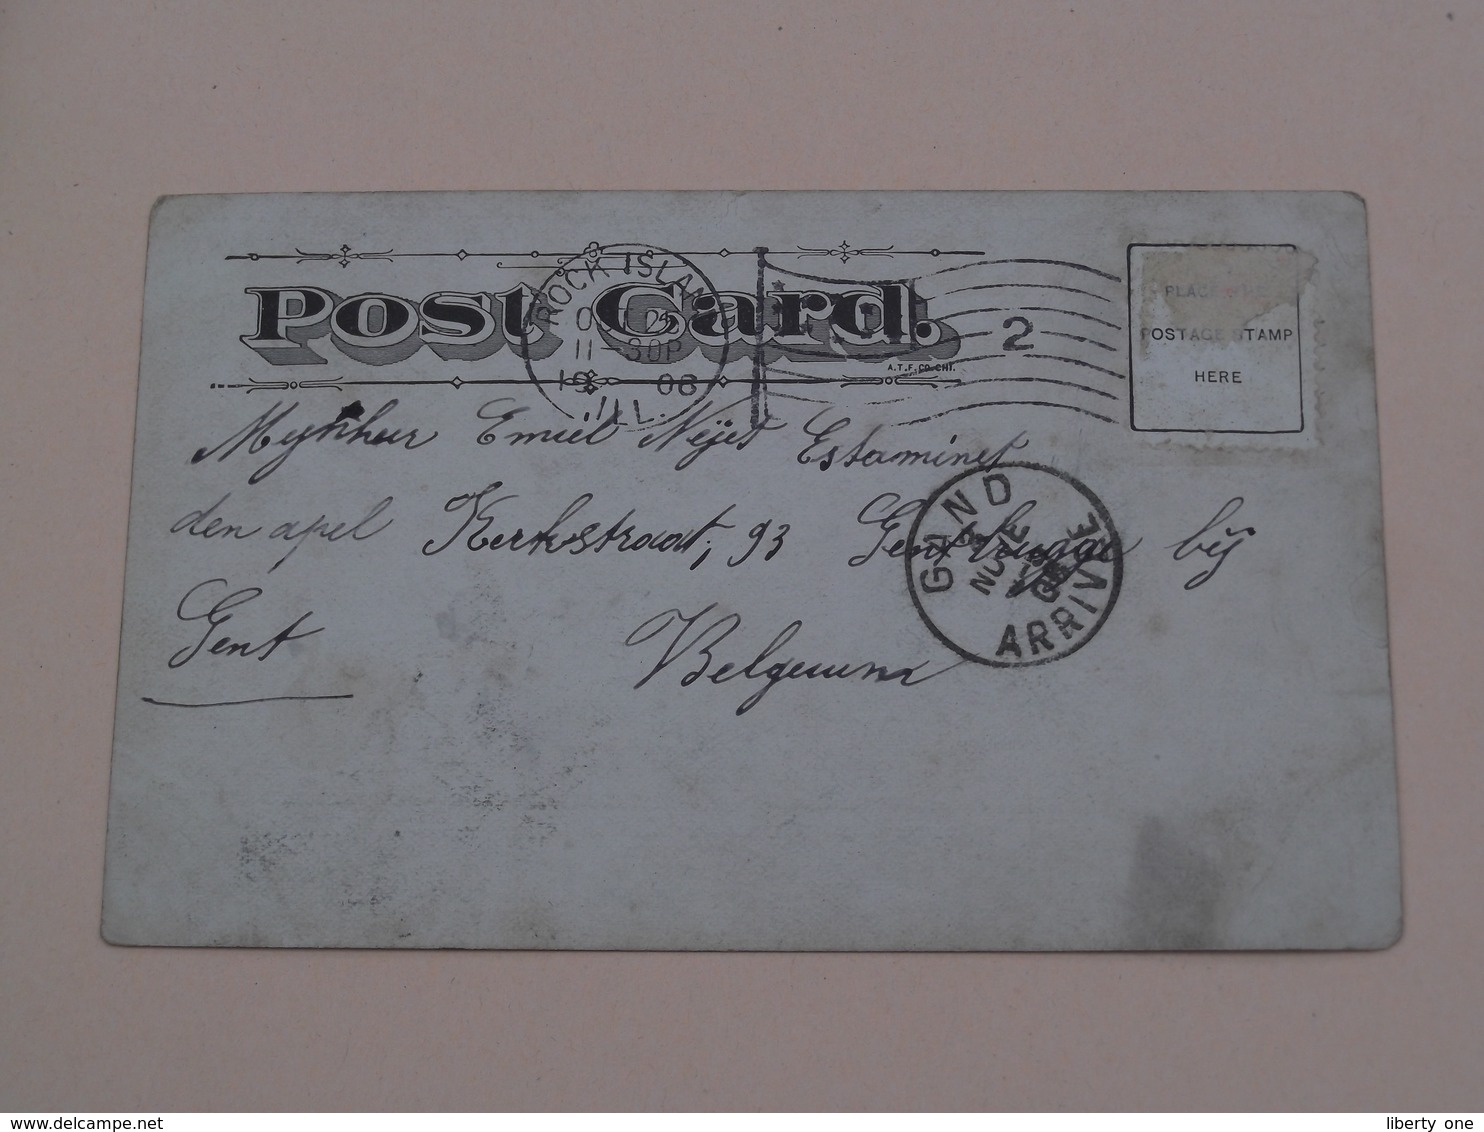 Post Card.
ROCK ISLAND
OCT 25
11-30P
1906
ILL.
2
A.T.F.CO.CHI.
PLACE THE
POSTAGE STAMP
HERE
Mynheer Emiel Neijet Estaminet
den apel Kerkstraat, 93 Gentbrugge bij
Gent Belgeuum
GAND
ARRIVEE
liberty one
www.delcampe.net